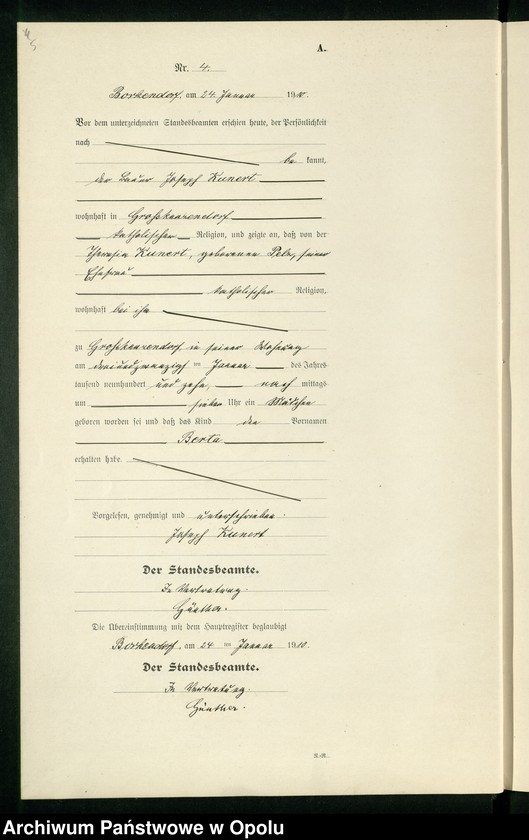 A.
Nr. 4.
Borkendorf, am 24. Januar 1910.
Vor dem unterzeichneten Standesbeamten erschien heute, der Persönlichkeit
nach
be kannt,
der Bauer Joseph Kunert
wohnhaft in Großkunzendorf
katholischer Religion, und zeigte an, daß von der
Theresia Kunert, geborenen Pelz, seiner
Ehefrau
katholischer Religion,
wohnhaft bei ihm
zu Großkunzendorf in seiner Wohnung
am dreiundzwanzigsten Januar des Jahres
tausend neunhundert und zehn, nach mittags
um sieben Uhr ein Mädchen
geboren worden sei und daß das Kind den Vornamen
Berta
erhalten habe.
Vorgelesen, genehmigt und unterschrieben.
Joseph Kunert
Der Standesbeamte.
In Vertretung.
Günther.
Die Übereinstimmung mit dem Hauptregister beglaubigt
Borkendorf, am 24 ten Januar 1910.
Der Standesbeamte.
In Vertretung.
Günther.
Archiwum Państwowe w Opolu